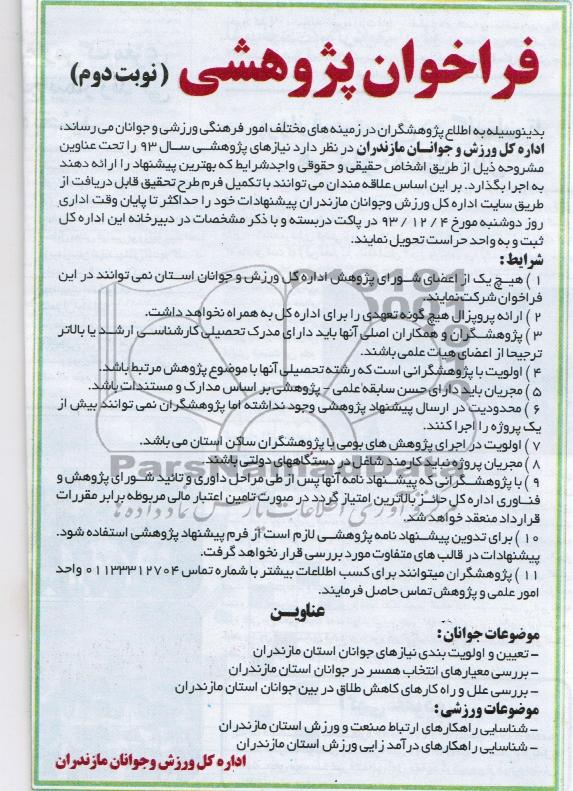 فراخوان پژوهشی (نوبت دوم)
بدینوسیله به اطلاع پژوهشگران در زمینه های مختلف امور فرهنگی ورزشی و جوانان می رساند،
اداره کل ورزش و جوانان مازندران در نظر دارد نیازهای پژوهشی سال ۹۳ را تحت عناوین
مشروحه ذیل از طریق اشخاص حقیقی و حقوقی واجدشرایط که بهترین پیشنهاد را ارائه دهند
به اجرا بگذارد. بر این اساس علاقه مندان می توانند با تکمیل فرم طرح تحقیق قابل دریافت از
طریق سایت اداره کل ورزش وجوانان مازندران پیشنهادات خود را حداکثر تا پایان وقت اداری
روز دوشنبه مورخ ۴ / ۱۲ / ۹۳ در پاکت دربسته و با ذکر مشخصات در دبیرخانه این اداره کل
ثبت و به واحد حراست تحویل نمایند.
شرایط:
۱ ) هیچ یک از اعضای شورای پژوهش اداره کل ورزش و جوانان استان نمی توانند در این
فراخوان شرکت نمایند.
۲ ) ارائه پروپزال هیچ گونه تعهدی را برای اداره کل به همراه نخواهد داشت.
۳ ) پژوهشگران و همکاران اصلی آنها باید دارای مدرک تحصیلی کارشناسی ارشد یا بالاتر
ترجیحا از اعضای هیات علمی باشند.
۴ ) اولویت با پژوهشگرانی است که رشته تحصیلی آنها با موضوع پژوهش مرتبط باشد.
۵ ) مجریان باید دارای حسن سابقه علمی - پژوهشی بر اساس مدارک و مستندات باشد.
۶ ) محدودیت در ارسال پیشنهاد پژوهشی وجود نداشته اما پژوهشگران نمی توانند بیش از
یک پروژه را اجرا کنند.
۷ ) اولویت در اجرای پژوهش های بومی با پژوهشگران ساکن استان می باشد.
۸ ) مجریان پروژه نباید کارمند شاغل در دستگاههای دولتی باشند.
۹ ) با پژوهشگرانی که پیشنهاد نامه آنها پس از طی مراحل داوری و تائید شورای پژوهش و
فناوری اداره کل حائز بالاترین امتیاز گردد در صورت تامین اعتبار مالی مربوطه برابر مقررات
قرارداد منعقد خواهد شد.
۱۰ ) برای تدوین پیشنهاد نامه پژوهشی لازم است از فرم پیشنهاد پژوهشی استفاده شود.
پیشنهادات در قالب های متفاوت مورد بررسی قرار نخواهد گرفت.
۱۱ ) پژوهشگران میتوانند برای کسب اطلاعات بیشتر با شماره تماس ۰۱۱۳۳۳۱۲۷۰۴ واحد
امور علمی و پژوهش تماس حاصل فرمایند.
عناوین
موضوعات جوانان:
- تعیین و اولویت بندی نیازهای جوانان استان مازندران
- بررسی معیارهای انتخاب همسر در جوانان استان مازندران
- بررسی علل و راه کارهای کاهش طلاق در بین جوانان استان مازندران
موضوعات ورزشی:
- شناسایی راهکارهای ارتباط صنعت و ورزش استان مازندران
- شناسایی راهکارهای درآمد زایی ورزش استان مازندران
اداره کل ورزش وجوانان مازندران